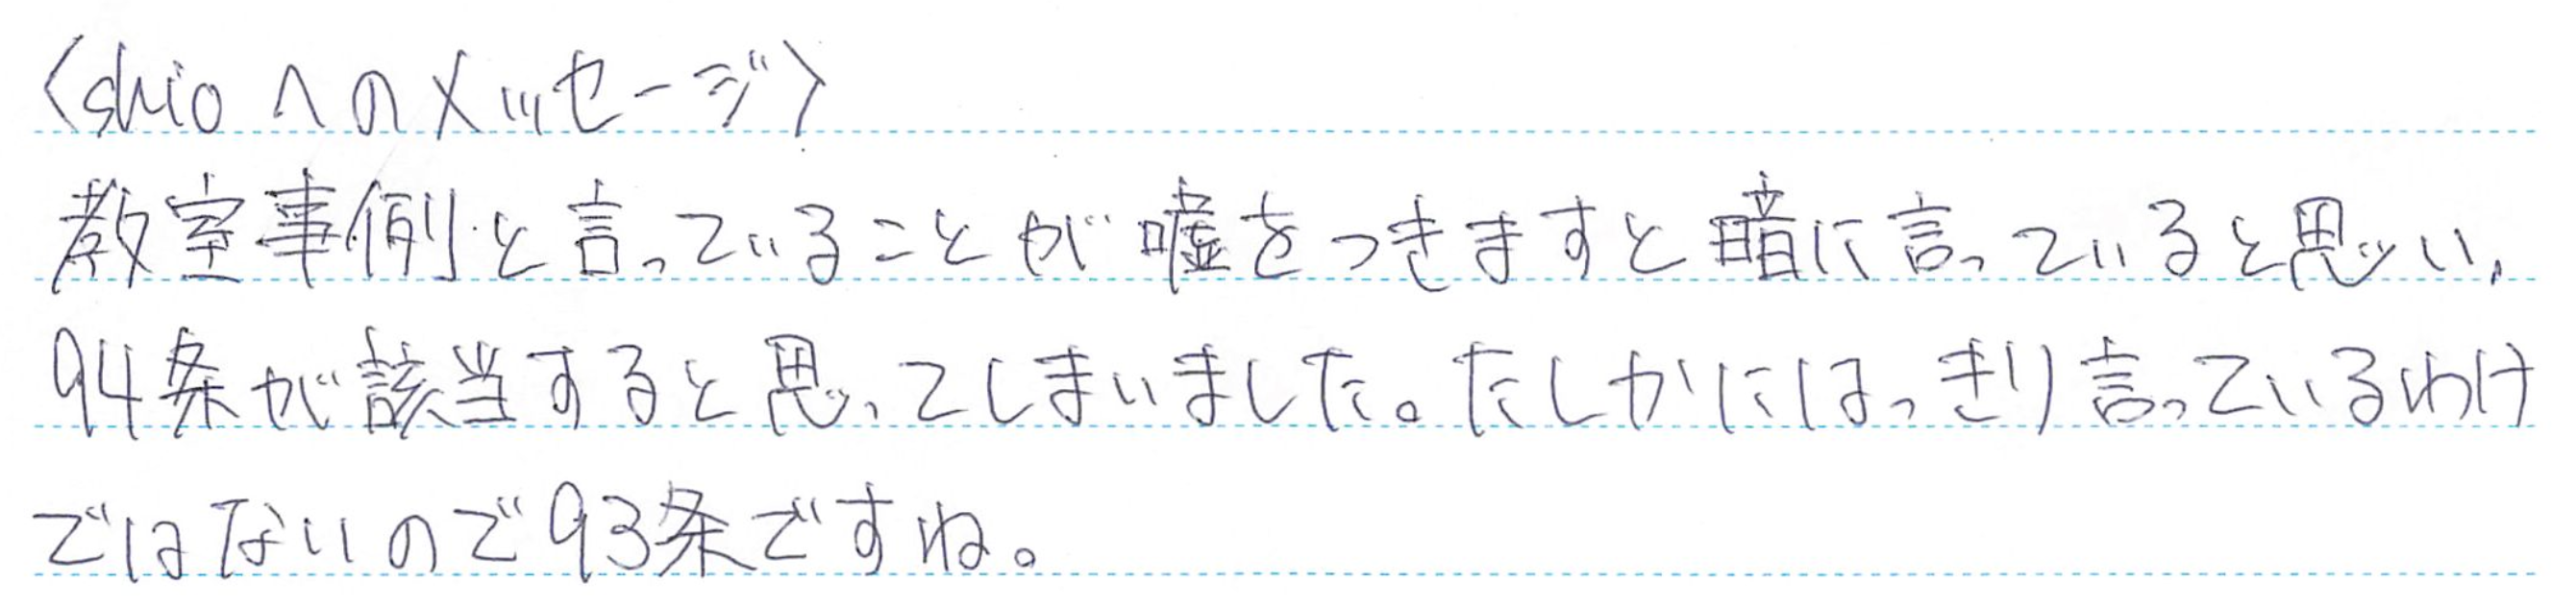 〈shioへのメッセージ〉
教室事例と言っていることが嘘をつきますと暗に言っていると思い,
94条が該当すると思ってしまいました。たしかにはっきり言っているわけ
ではないので93条ですね。